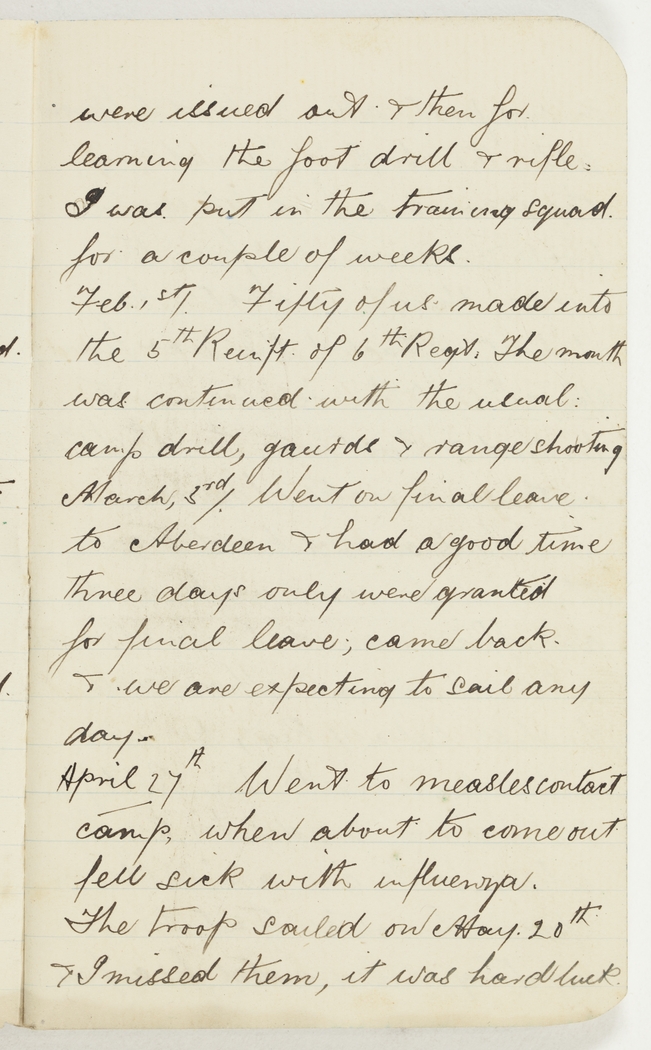 were issued out & then for
learning the foot drill & rifle.
I was put in the training squad.
for a couple of weeks.
Feb. 1st/. Fifty of us made into
the 5th Reinft. of 6th Regt. The month
was continued with the usual:
camp drill, gaurds & range shooting
March, 3rd/. Went on final leave.
to Aberdeen & had a good time
three days only were granted
for final leave; came back.
& we are expecting to sail any
day.
April 27th Went to measles contact
camp, when about to come out
fell sick with influenza.
The troop sailed on May. 20th
& I missed them, it was hard luck.
d.
d.